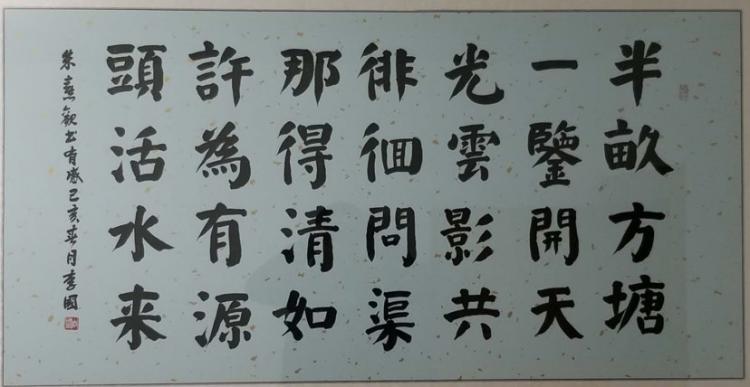 半畝方塘
一鑒開天
光雲影共
徘徊問渠
那得清如
許為有源
頭活水来
朱熹觀書有感己亥春月李國